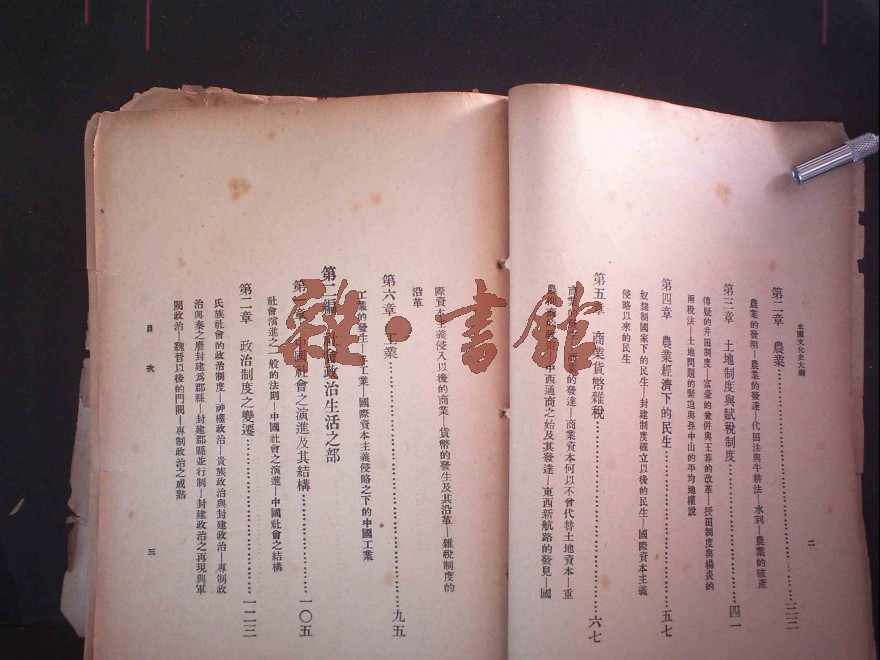 本國文化史大綱
二
第二章 農業……………二三
農業的發明—農業的發達—代田法與牛耕法—水利—農業的破產
第三章 土地制度與賦稅制度……………四一
傳疑的井田制度—富豪的兼併與王莽的改革—授田制度與楊炎的
兩稅法—土地問題的緊迫與孫中山的平均地權說
第四章 農業經濟下的民生……………五七
奴隸制國家下的民生—封建制度確立以後的民生—國際資本主義
侵略以來的民生
第五章 商業貨幣雜稅……………六七
商業的發達—商業資本何以不曾代替土地資本—重
中西通商之始及其發達—東西新航路的發見—國
際資本主義侵入以後的商業—貨幣的發生及其沿革—雜稅制度的
沿革
第六章 工業……………九五
工業的發生—手工業—國際資本主義侵略之下的中國工業
第二編 社會政治生活之部
第一章 中國社會之演進及其結構……………一〇五
社會演進之一般的法則—中國社會之演進—中國社會之結構
第二章 政治制度之變遷……………一二三
氏族社會的政治制度—神權政治—貴族政治與封建政治—專制政
治與秦之廢封建為郡縣—封建郡縣並行制—封建政治之再現與軍
閥政治—魏晉以後的門閥—專制政治之成熟
目次
三
雜·書館